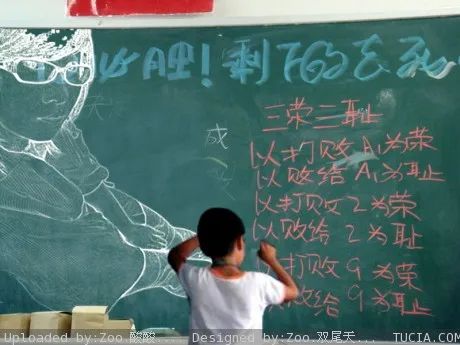 ! 剩下的
三荣三耻
成
以打败A1为荣
以败给A1为耻
以打败2为荣
以败给2为耻
打败9为荣
败给9为耻
Uploaded by:Zoo.酸酸... Designed by:Zoo.双尾天... TUCIA.COM